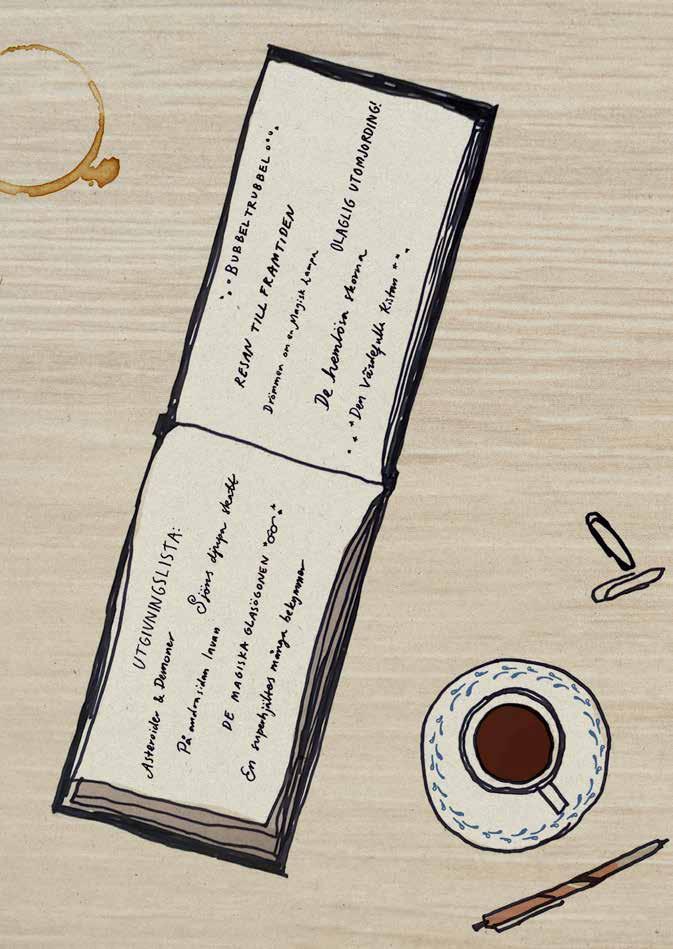 UTGIVNINGSLISTA:
Asteroider & Demoner
Sjöns djupa skatt
På andra sidan lavan
DE MAGISKA GLASÖGONEN
En superhjältes många bekymmer
BUBBELTRUBBEL
RESAN TILL FRAMTIDEN
Drömmen om en Magisk Lampa
OLAGLIG UTOMJORDING!
De hemlösa skorna
Den Värdefulla Kistan